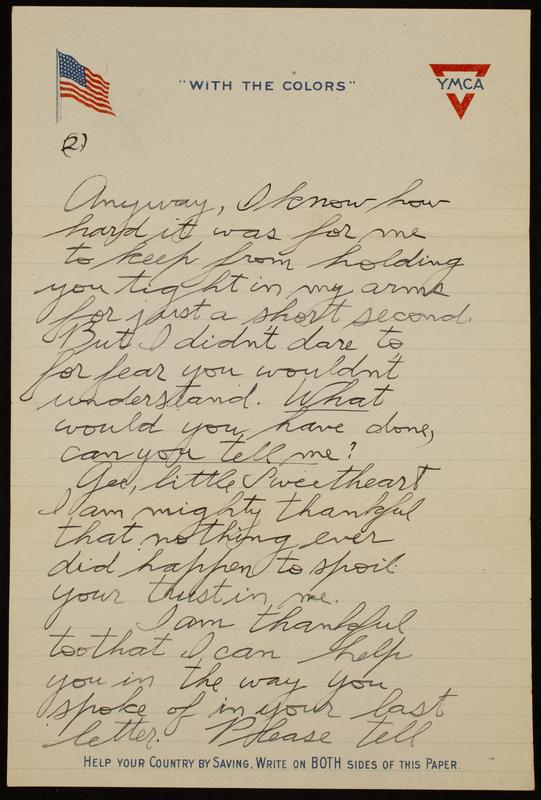 "WITH THE COLORS"
YMCA
(2)
Anyway, I know how
hard it was for me
to keep from holding
you tight in my arms
for just a short second.
But I didn't dare to
for fear you wouldn't
understand. What
would you have done,
can you tell me?
Gee, little Sweetheart
I am mighty thankful
that nothing ever
did happen to spoil
your trust in me.
I am thankful
too that I can help
you in the way you
spoke of in your last
letter. Please tell
HELP YOUR COUNTRY BY SAVING. WRITE ON BOTH SIDES OF THIS PAPER.